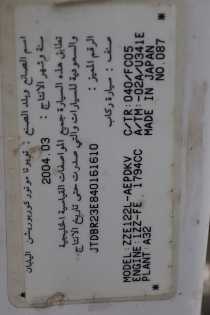 اسم الصانع وبلد الصنع : تويوتا موتور كوربوريشن اليابان
سنة وشهر الانتاج : 2004.03
تطابق هذه السيارة جميع المواصفات القياسية الخليجية
والسعودية للسيارات والتي صدرت حتى تاريخ الانتاج
الرقم المميز : JTDBR23E840161610
صنف : سيارة ركاب
MODEL:ZZE122L-AEPDKV
ENGINE:1ZZ-FE 1794CC
PLANT:A32
C/TR:040/FC05
A/TM:-02A/U341E
MADE IN JAPAN
NO 087